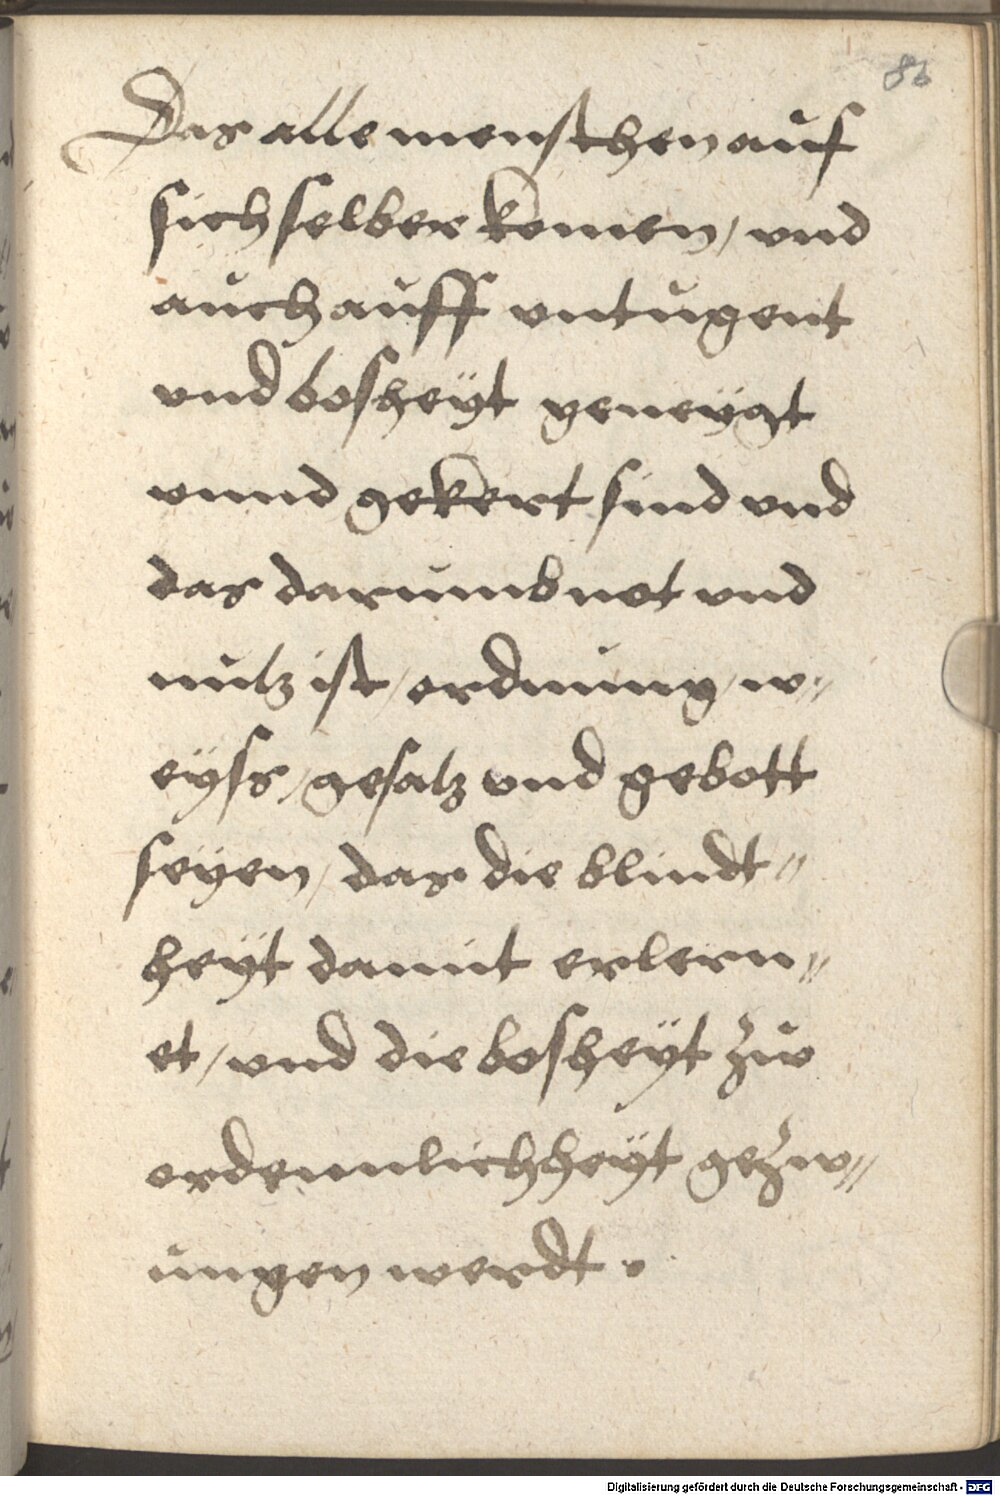 86
Das alle menschen auf
sich selber komen / vnd
auch auff vntugent
vnd bosheÿt geneÿgt
vnnd gekert sind vnd
das darumb not vnd
nutz ist / ordnung / w//
eÿss / gesatz vnd gebott
seÿen / das die blindt//
heÿt damit erlern//
et / vnd die bosheÿt zuo
ordennlichheÿt gezw//
ungen werdt .
Digitalisierung gefördert durch die Deutsche Forschungsgemeinschaft - DFG